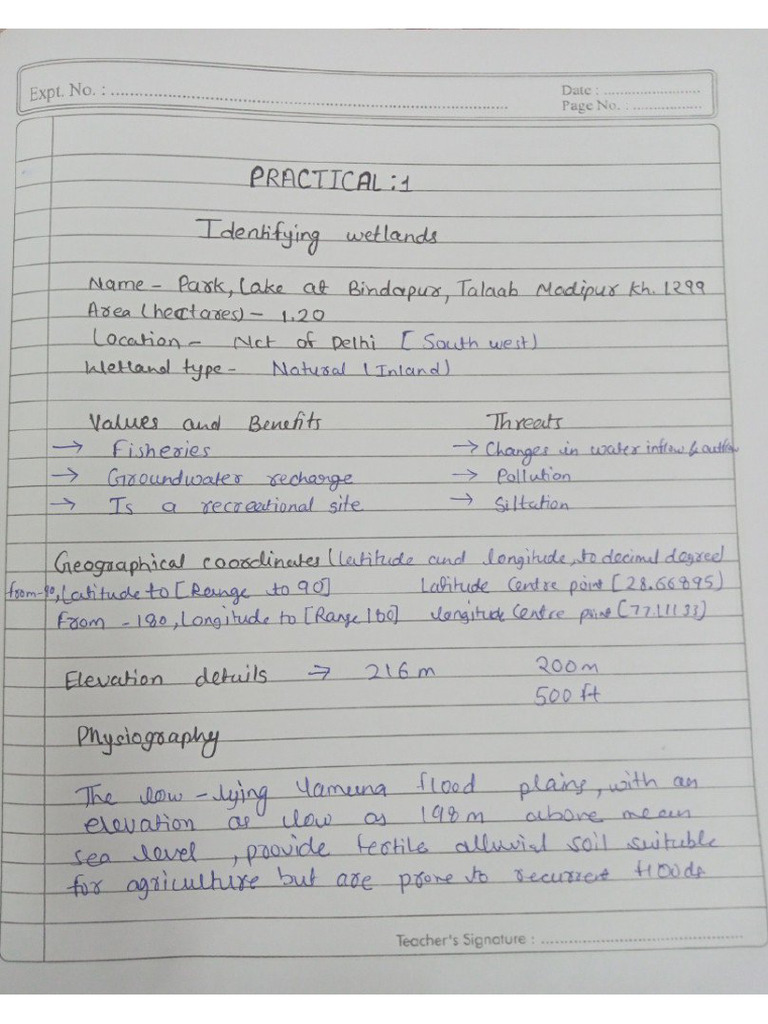 Expt. No. : ........................................
Date : ........................
Page No. : .................
PRACTICAL:1
Identifying wetlands
Name - Park, Lake at Bindapur, Talaab Madipur Kh. 1299
Area (hectares) - 1.20
Location - Nct of Delhi [South west)
Wetland type - Natural (Inland)
Values and Benefits Threats
→ Fisheries → Changes in water inflow & outflow
→ Groundwater recharge → Pollution
→ Is a recreational site → Siltation
Geographical coordinates (latitude and longitude, to decimal degree)
from -90, Latitude to [Range to 90] Latitude Centre point [28.66895)
From - 180, Longitude to [Range 180] longitude Centre point [77.11133)
Elevation details → 216m 200m
500 ft
Physiography
The low-lying Yamuna flood plains, with an
elevation as low as 198m above mean
sea level, provide fertile alluvial soil suitable
for agriculture but are prone to recurrent floods
Teacher's Signature : ........................................